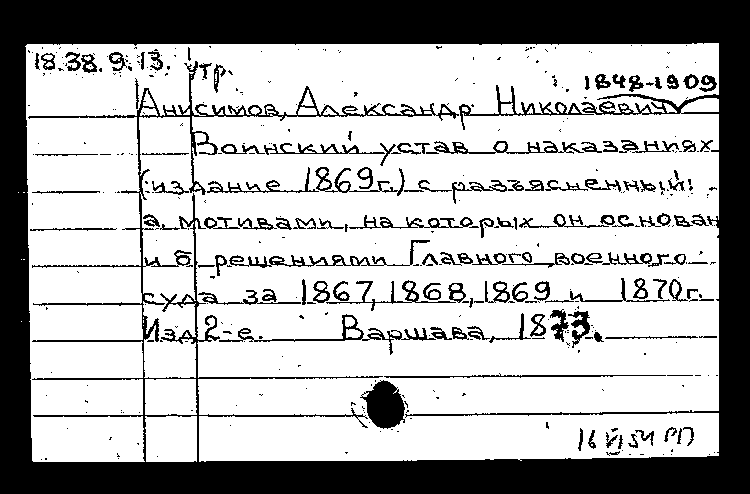 18.38.9.13. утр.
1848-1909
Анисимов, Александр Николаевич
Воинский устав о наказаниях
(издание 1869г.) с разъясненный:
а. мотивами, на которых он основан
и б. решениями Главного военного
суда за 1867, 1868, 1869 и 1870г.
Изд 2-е. Варшава, 1873.
16 VI 54 РП